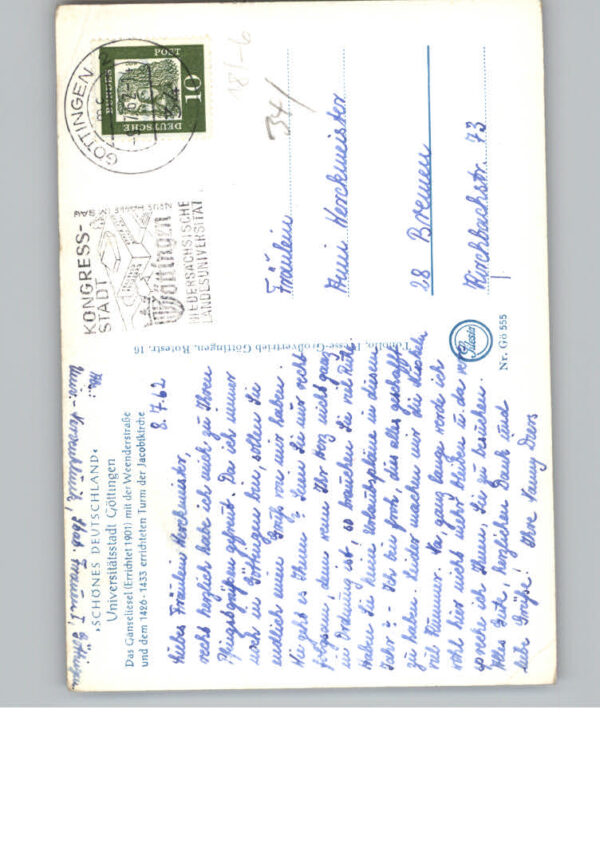 »SCHÖNES DEUTSCHLAND«
Universitätsstadt Göttingen
Das Gänseliesel (Errichtet 1901) mit der Weenderstraße
und dem 1426-1433 errichteten Turm der Jacobikirche
8.7.62
Liebes Fräulein Kerckmeister,
recht herzlich habe ich mich zu Ihren
Pfingstgrüßen gefreut. Da ich immer
noch in Göttingen bin, sollen Sie
endlich einen Gruß von mir haben.
Wie geht es Ihnen? Seien Sie nur recht
folgsam, denn wenn Ihr Herz nicht ganz
in Ordnung ist, so brauchen Sie viel Ruhe.
Haben Sie keine Urlaubspläne in diesem
Jahr? - Ich bin froh, das alles geschafft
zu haben. Leider machen mir die
viel Kummer. Na, ganz lange werde ich
wohl hier nicht mehr bleiben u. da ver-
spreche ich Ihnen, Sie zu besuchen.
Alles Gute, herzlichen Dank und
liebe Grüße! Ihre
Nr. Gö 555
GÖTTINGEN
DEUTSCHE BUNDESPOST
10
KONGRESS-
STADT
Göttingen
NIEDERSÄCHSISCHE
LANDESUNIVERSITÄT
34/
Fräulein
Kerckmeister
28 Bremen
Kirchbachstr. 73